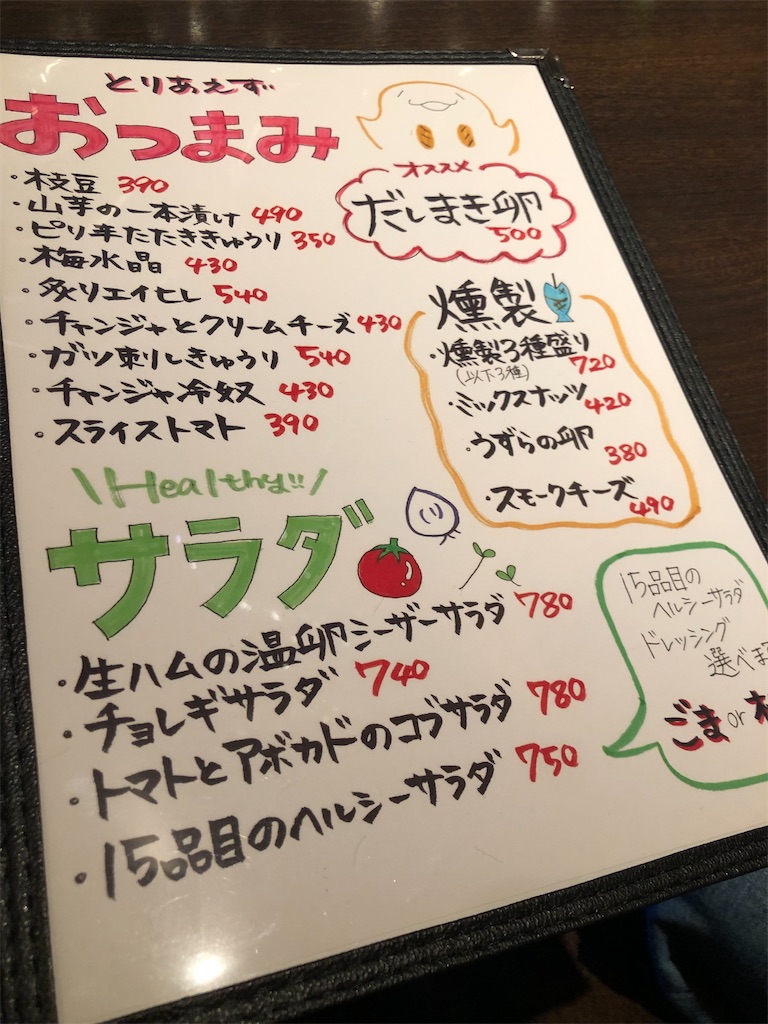 とりあえず
おつまみ
・枝豆 390
・山芋の一本漬け 490
・ピリ辛たたききゅうり 350
・梅水晶 430
・炙りエイヒレ 540
・チャンジャとクリームチーズ 430
・ガツ刺しきゅうり 540
・チャンジャ冷奴 430
・スライストマト 390
オススメ
だしまき卵
500
燻製
・燻製3種盛り
(以下3種) 720
・ミックスナッツ 420
・うずらの卵 380
・スモークチーズ 490
\Healthy!!/
サラダ
・生ハムの温卵シーザーサラダ 780
・チョレギサラダ 740
・トマトとアボカドのコブサラダ 780
・15品目のヘルシーサラダ 750
15品目の
ヘルシーサラダ
ドレッシング
選べま
ごま or